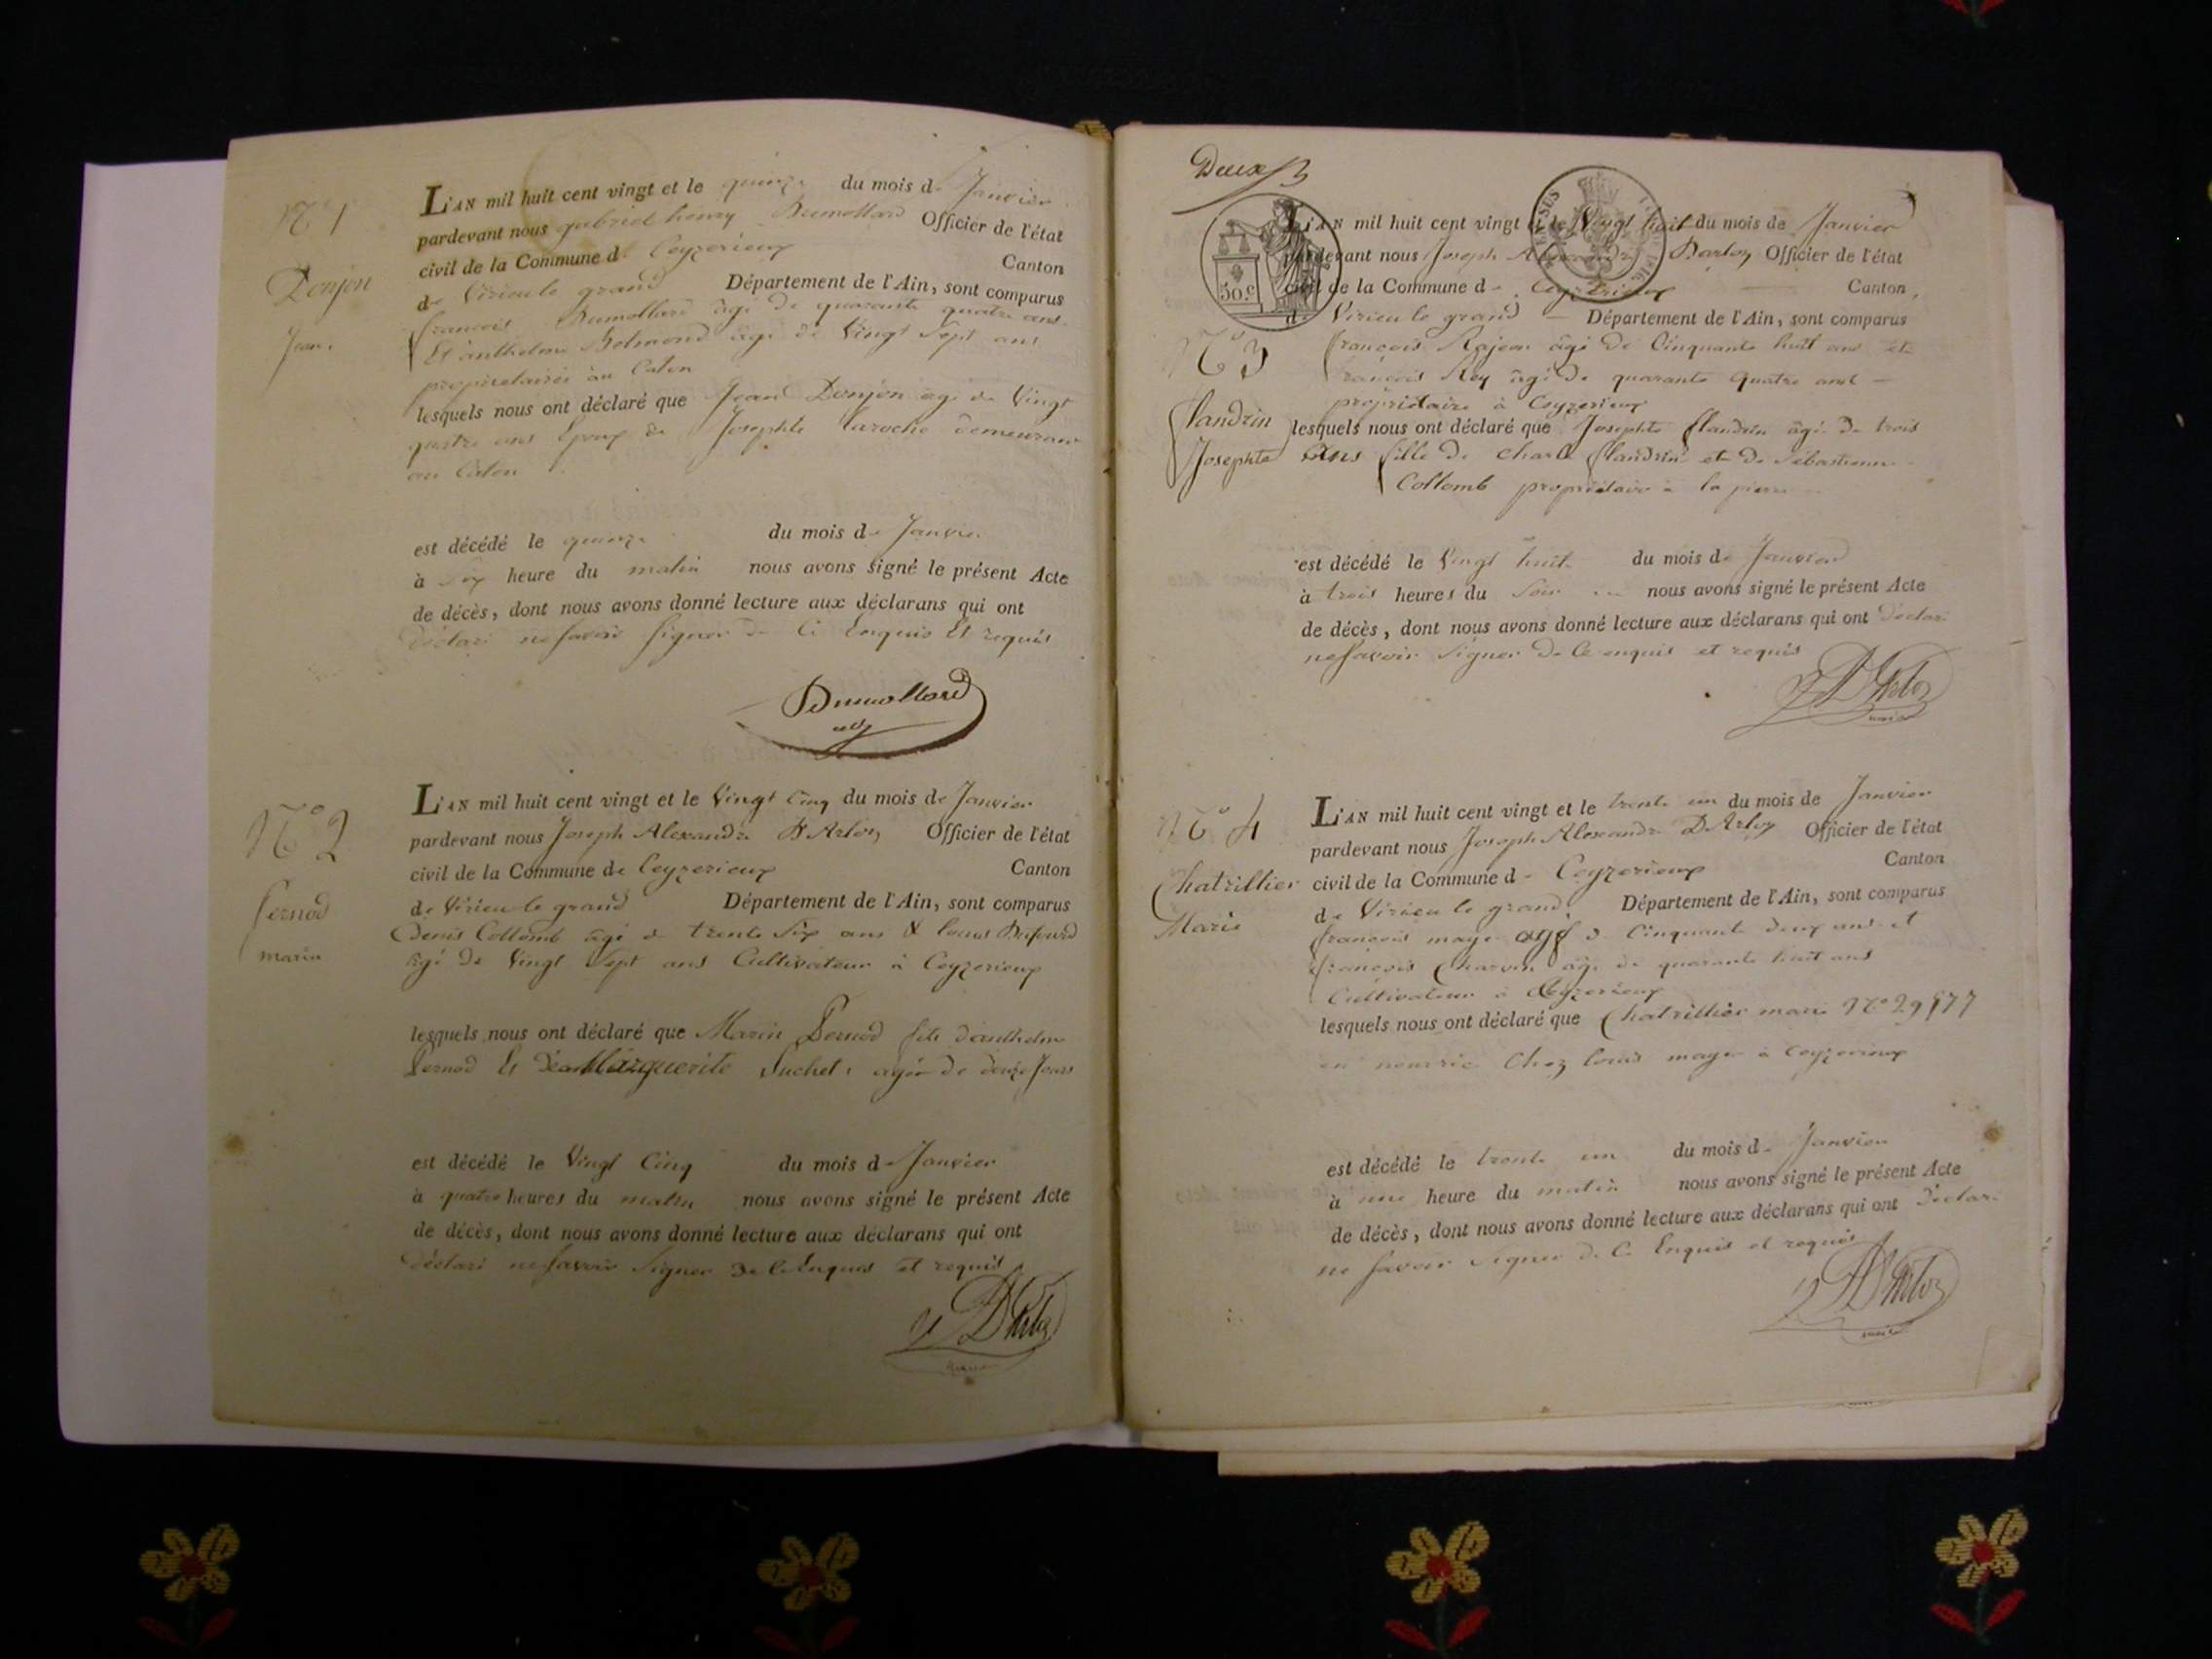 N° 1
Donjon
Jean.
L'AN mil huit cent vingt et le quinze du mois de Janvier
pardevant nous gabriel henry Dumollard Officier de l'état
civil de la Commune de Ceyzerieux Canton
de Virieu le grand Département de l'Ain, sont comparus
françois Dumollard âgé de quarante quatre ans
Et anthelme âgé de Vingt Sept ans
propriétaires au Caton
lesquels nous ont déclaré que Jean Donjon âgé de Vingt
quatre ans Epoux de Josephte Laroche demeurant
au Caton
est décédé le quinze du mois de Janvier
à Six heure du matin nous avons signé le présent Acte
de décès, dont nous avons donné lecture aux déclarans qui ont
déclaré ne Savoir Signer de Ce Enquis Et requis
Dumollard
adj
N° 2
Pernod
marin
L'AN mil huit cent vingt et le Vingt Cinq du mois de Janvier
pardevant nous Joseph Alexandre D'Arloz Officier de l'état
civil de la Commune de Ceyzerieux Canton
de Virieu le grand Département de l'Ain, sont comparus
Denis Collomb âgé de trente Six ans & louis
âgé de Vingt Sept ans Cultivateur à Ceyzerieux
lesquels nous ont déclaré que Marin Pernod fils d'anthelme
Pernod Et de Marguerite Suchet âgée de douze Jours
est décédé le Vingt Cinq du mois de Janvier
à quatre heures du matin nous avons signé le présent Acte
de décès, dont nous avons donné lecture aux déclarans qui ont
déclaré ne Savoir Signer de Ce Enquis et requis
D'Arloz
Deux
50.c
N° 3
flandrin
Josephte
L'AN mil huit cent vingt et le Vingt huit du mois de Janvier
pardevant nous Joseph Alexandre Darloz Officier de l'état
civil de la Commune de Ceyzerieux Canton
de Virieu le grand Département de l'Ain, sont comparus
françois Rajeon âgé de Cinquante huit ans et
françois Rey âgé de quarante quatre ans
propriétaire à Ceyzerieux
lesquels nous ont déclaré que Josephte flandrin âgé de trois
ans fille de Charle flandrin et de Sébastienne
Collomb propriétaire à la pierre
est décédé le Vingt huit du mois de Janvier
à trois heures du Soir nous avons signé le présent Acte
de décès, dont nous avons donné lecture aux déclarans qui ont déclaré
ne Savoir Signer de Ce enquis et requis
D'Arloz
maire
N° 4
Chatrillier
Marie
L'AN mil huit cent vingt et le trente un du mois de Janvier
pardevant nous Joseph Alexandre D'Arloz Officier de l'état
civil de la Commune de Ceyzerieux Canton
de Virieu le grand Département de l'Ain, sont comparus
françois maye agé de Cinquante deux ans et
françois Charvin âgé de quarante huit ans
Cultivateur à Ceyzerieux
lesquels nous ont déclaré que Chatrillier marie N° 29577
en nourrice Chez louis maye à Ceyzerieux
est décédé le trente un du mois de Janvier
à une heure du matin nous avons signé le présent Acte
de décès, dont nous avons donné lecture aux déclarans qui ont déclaré
ne Savoir Signer de Ce Enquis et requis
D'Arloz
maire